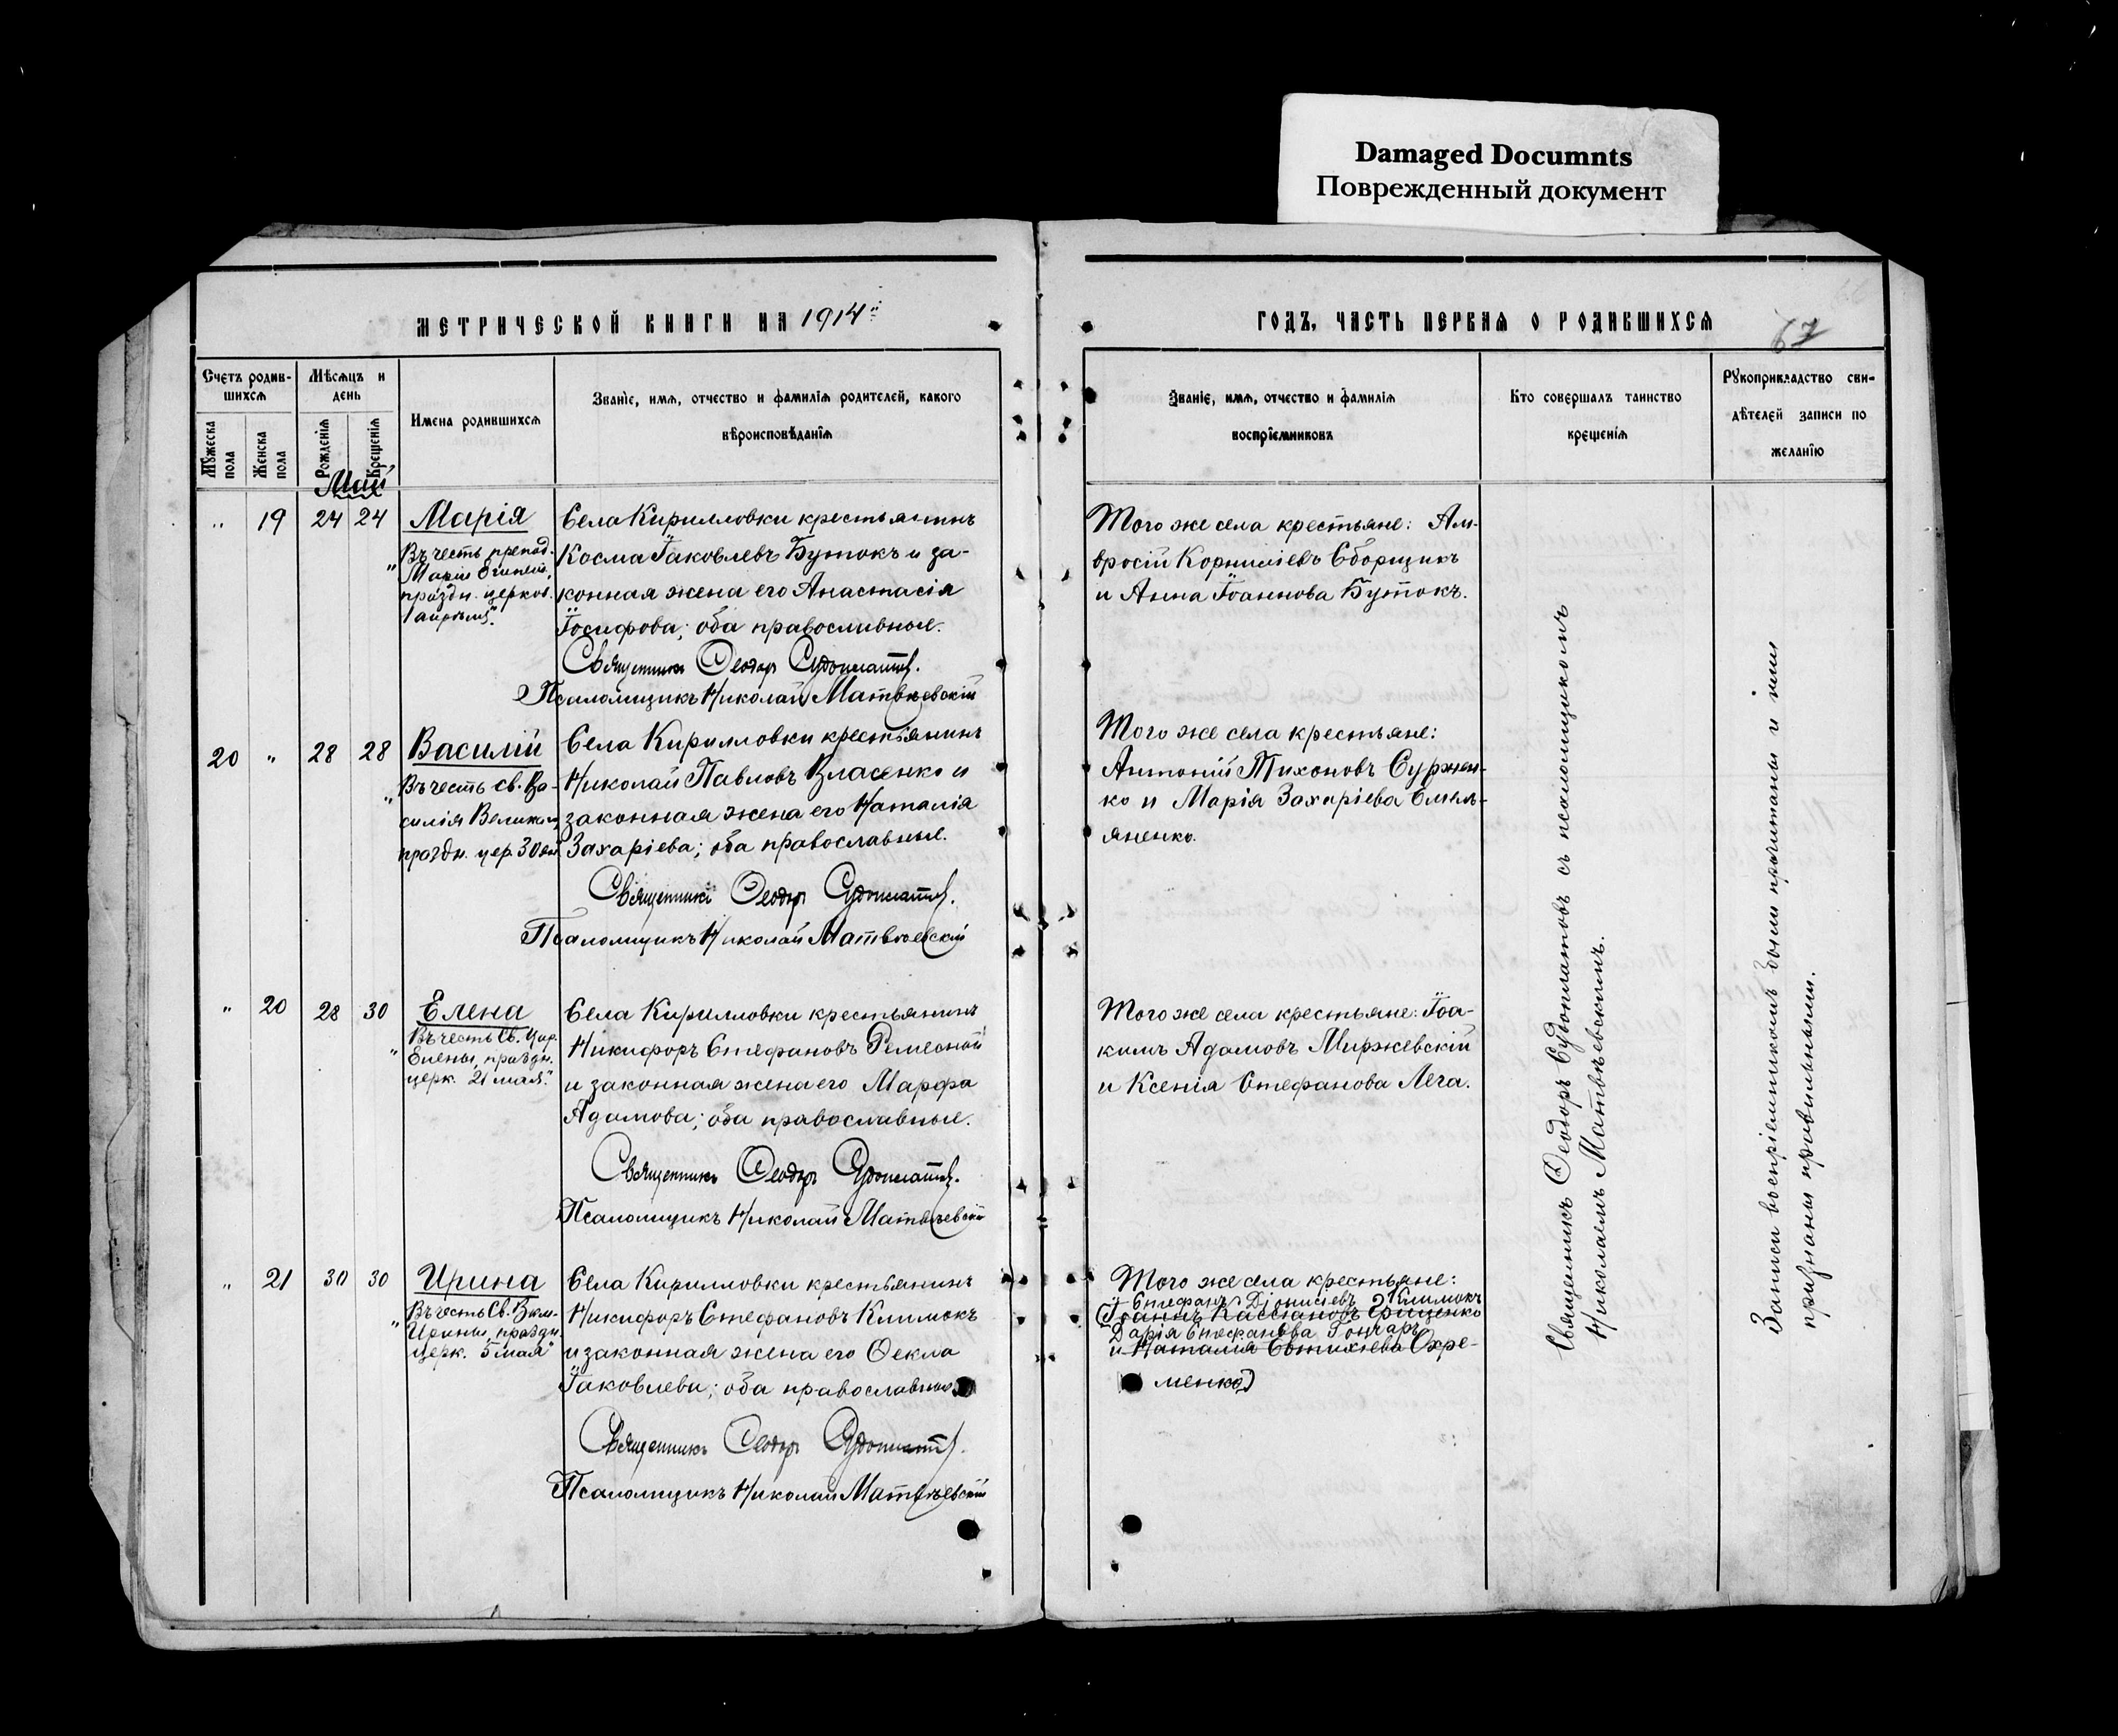 Damaged Documnts
Поврежденный документ
МЕТРИЧЕСКОЙ КНИГИ НА 1914й
ГОДЪ, ЧАСТЬ ПЕРВАЯ О РОДИВШИХСЯ
67
Счетъ родив-
шихся
Мужеска пола
Женска пола
Мѣсяцъ и
день
Рожденія
Крещенія
Имена родившихся
Званіе, имя, отчество и фамилія родителей, какого
вѣроисповѣданія
Званіе, имя, отчество и фамилія
воспріемниковъ
Кто совершалъ таинство
крещенія
Рукоприкладство сви-
дѣтелей записи по
желанію
Май
„ 19 24 24 Марія
„Въ честь препод.
Маріи Египет.,
праздн. церков.
1 апрѣля“.
Села Кирилловки крестьянинъ
Косма Іаковлевъ Бутокъ и за-
конная жена его Анастасія
Іосифова; оба православные.
Священникъ Ѳеодоръ Судоплатовъ.
Псаломщикъ Николай Матвѣевскій
Того же села крестьяне: Ам-
вросій Корниліевъ Сборщикъ
и Анна Іоаннова Бутокъ.
20 „ 28 28 Василій
„Въ честь св. Ва-
силія Великаго,
праздн. цер. 30 янв
Села Кирилловки крестьянинъ
Николай Павловъ Власенко и
законная жена его Наталія
Захаріева; оба православные.
Священникъ Ѳеодоръ Судоплатовъ.
Псаломщикъ Николай Матвѣевскій
Того же села крестьяне:
Антоній Тихоновъ Суржен-
ко и Марія Захаріева Емель-
яненко.
„ 20 28 30 Елена
„Въ честь Св. Цар.
Елены, праздн.
церк. 21 мая“.
Села Кирилловки крестьянинъ
Никифоръ Стефановъ Ремесной
и законная жена его Марфа
Адамова; оба православные.
Священникъ Ѳеодоръ Судоплатовъ.
Псаломщикъ Николай Матвѣевскій
Того же села крестьяне: Іоа-
кимъ Адамовъ Миржевскій
и Ксенія Стефанова Леча.
„ 21 30 30 Ирина
„Въ честь Св. Велм.
Ирины, праздн.
церк. 5 мая“
Села Кирилловки крестьянинъ
Никифоръ Стефановъ Климокъ
и законная жена его Ѳекла
Іаковлева; оба православные
Священникъ Ѳеодоръ Судоплатовъ.
Псаломщикъ Николай Матвѣевскій
Того же села крестьяне:
Стефанъ Діонисіевъ Климокъ
(Іоаннъ Кассіановъ Грищенко
Дарія Стефанова Гончаръ
и Наталія Евтихіева Охре-
менко)
Священникъ Ѳеодоръ Судоплатовъ съ псаломщикомъ
Николаемъ Матвѣевскимъ.
Записи воспріемникамъ были прочитаны и ими
признаны правильными.